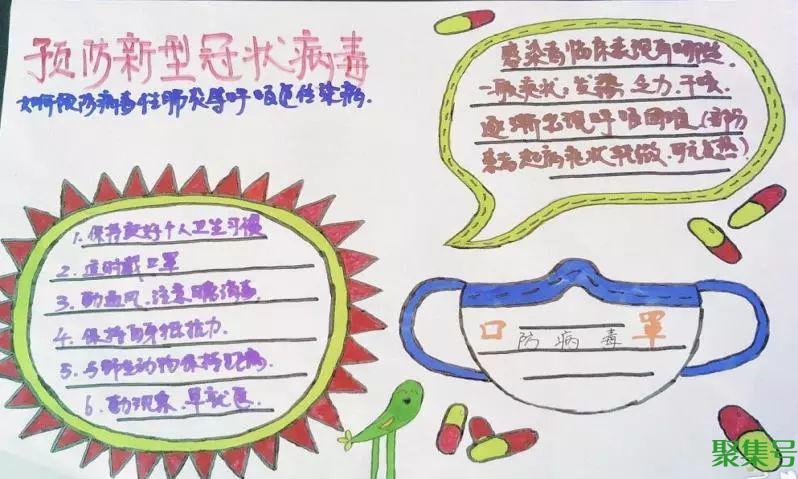 预防新型冠状病毒
如何预防病毒性肺炎与呼吸道传染病.
感染者临床表现有哪些.
一般症状:发热,乏力,干咳.
逐渐出现呼吸困难(部分
患者起病症状轻微.可无发热)
1.保持良好个人卫生习惯
2.适时戴口罩
3.勤通风.注意 消毒.
4.保持自身抵抗力.
5.与野生动物保持距离
6.勤观察.早就医.
口 防病毒 罩
聚集号